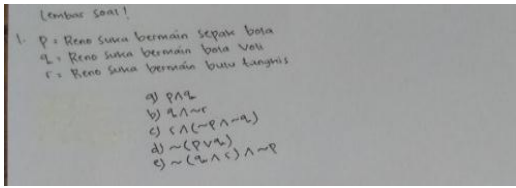 Lembar soal!
1. p = Reno suka bermain sepak bola
q = Reno suka bermain bola voli
r = Reno suka bermain bulu tangkis
a) p∧q
b) q∧~r
c) r∧(~p∧~q)
d) ~(p∨q)
e) ~(q∧r)∧~p